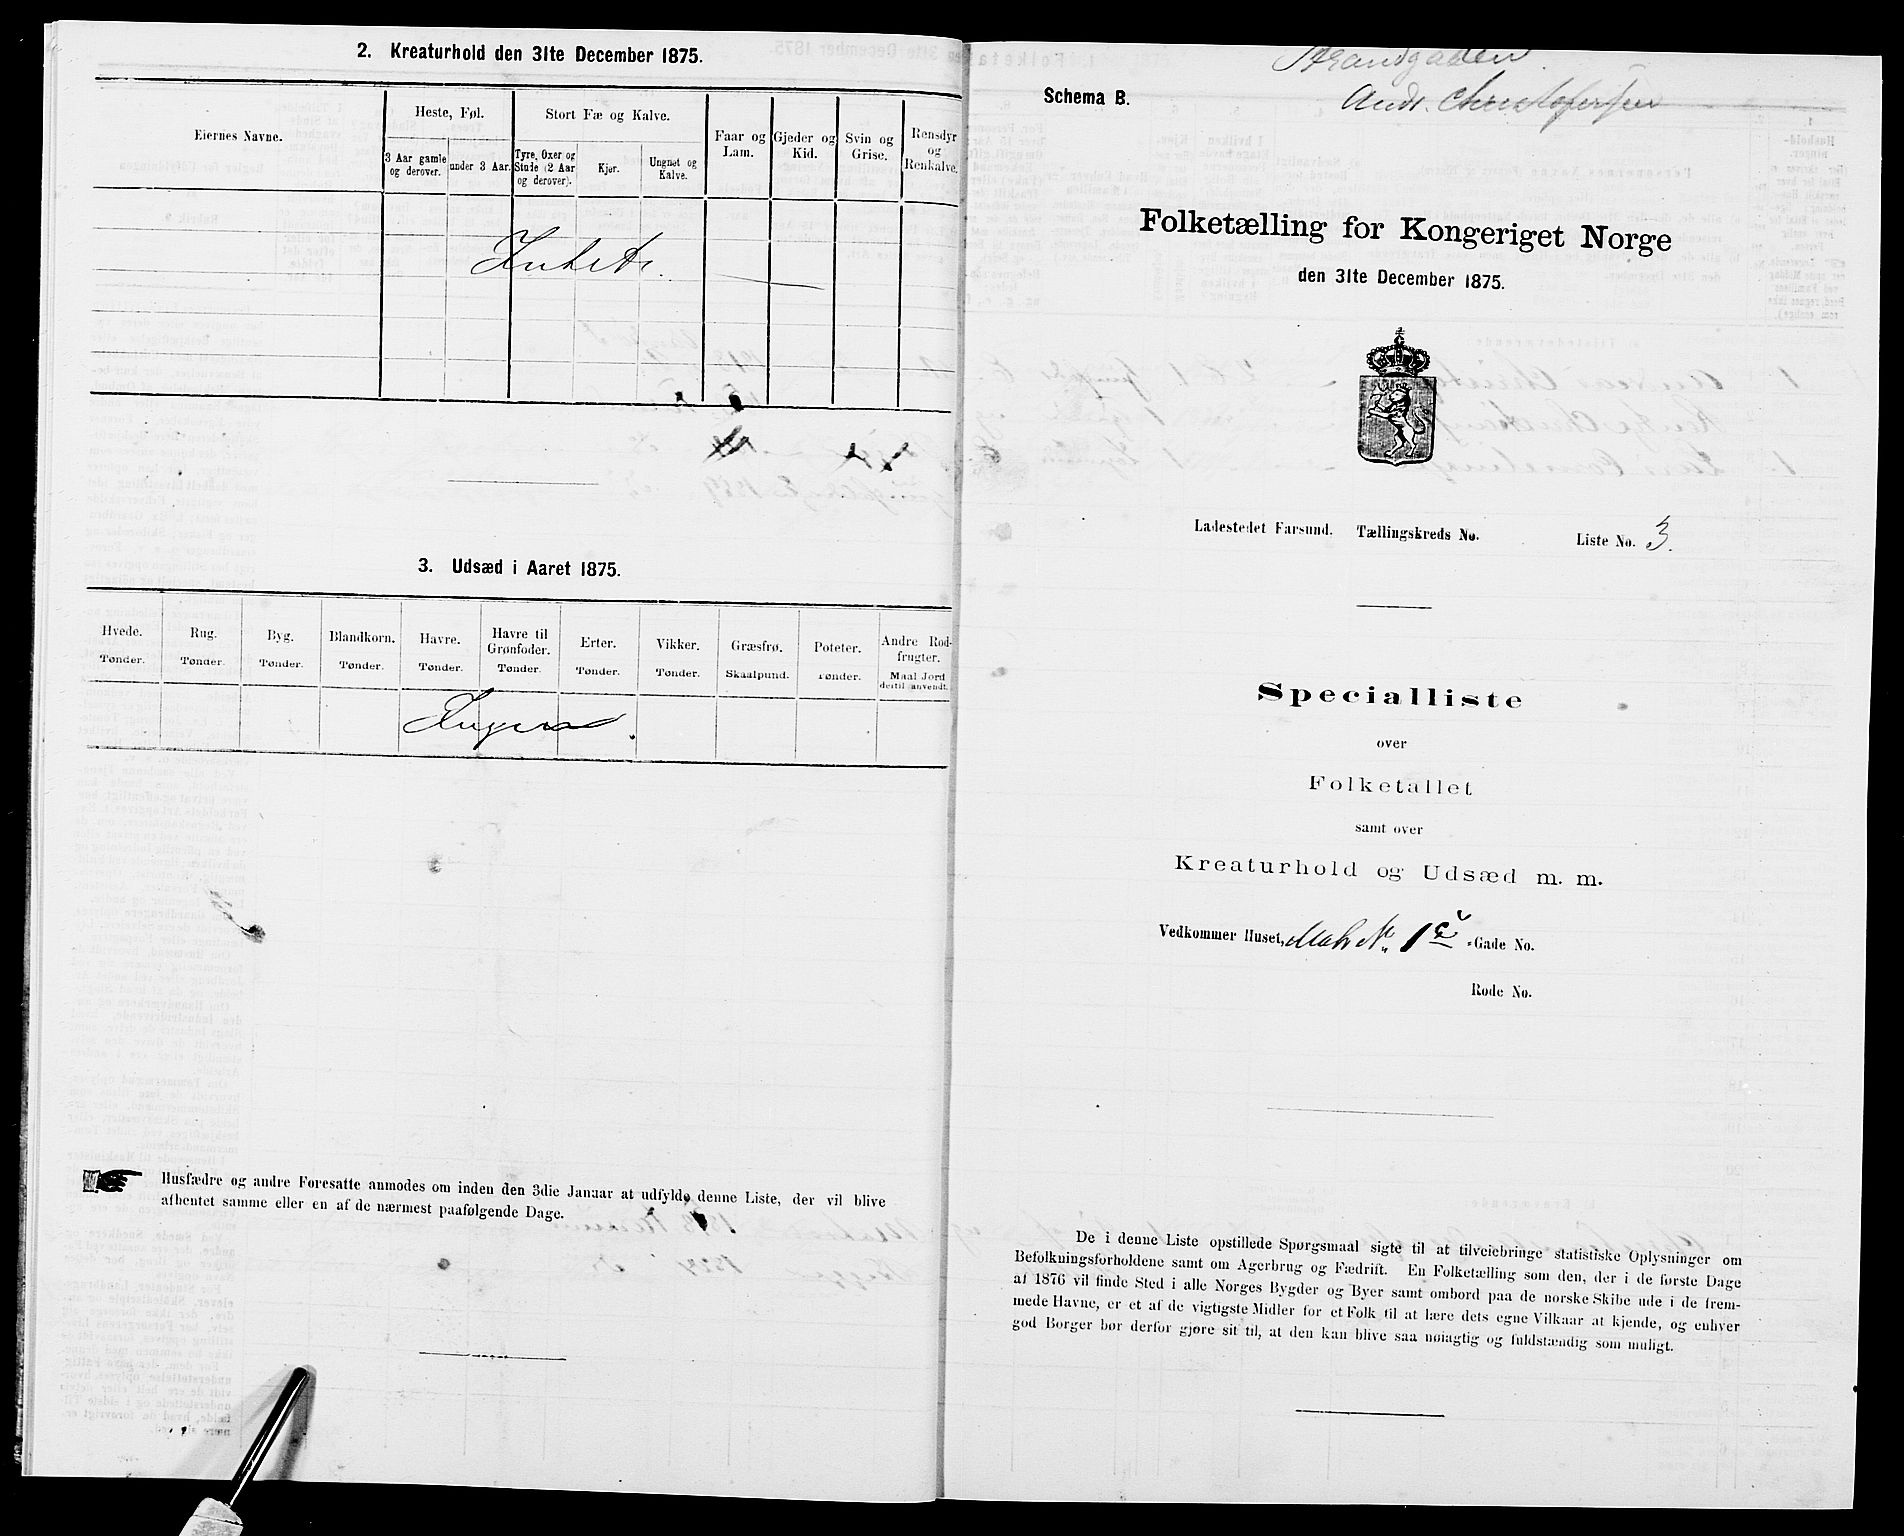 2. Kreaturhold den 31te December 1875.
Eiernes Navne.
Heste, Føl.
Stort Fæ og Kalve.
Faar og Lam.
Gjeder og Kid.
Svin og Grise.
Rensdyr og Renkalve.
3 Aar gamle og derover.
under 3 Aar.
Tyre, Oxer og Stude (2 Aar og derover).
Kjør.
Ungnøt og Kalve.
Intet
3. Udsæd i Aaret 1875.
Hvede. Rug. Byg. Blandkorn. Havre. Havre til Grønfoder. Erter. Vikker. Græsfrø. Poteter. Andre Rodfrugter.
Tønder. Tønder. Tønder. Tønder. Tønder. Tønder. Tønder. Tønder. Skaalpund. Tønder. Maal Jord dertil anvendt.
Ingen
Husfædre og andre Foresatte anmodes om inden den 3die Januar at udfylde denne Liste, der vil blive
afhentet samme eller en af de nærmest paafølgende Dage.
Strandgaden
Andr. Christofersen
Schema B.
Folketælling for Kongeriget Norge
den 31te December 1875.
Ladestedet Farsund. Tællingskreds No. Liste No. 3.
Specialliste
over
Folketallet
samt over
Kreaturhold og Udsæd m. m.
Vedkommer Huset, Matr. No. 1c -Gade No.
Rode No.
De i denne Liste opstillede Spørgsmaal sigte til at tilveiebringe statistiske Oplysninger om
Befolkningsforholdene samt om Agerbrug og Fædrift. En Folketælling som den, der i de første Dage
af 1876 vil finde Sted i alle Norges Bygder og Byer samt ombord paa de norske Skibe ude i de frem-
mede Havne, er et af de vigtigste Midler for et Folk til at lære dets egne Vilkaar at kjende, og enhver
god Borger bør derfor gjøre sit til, at den kan blive saa nøiagtig og fuldstændig som muligt.